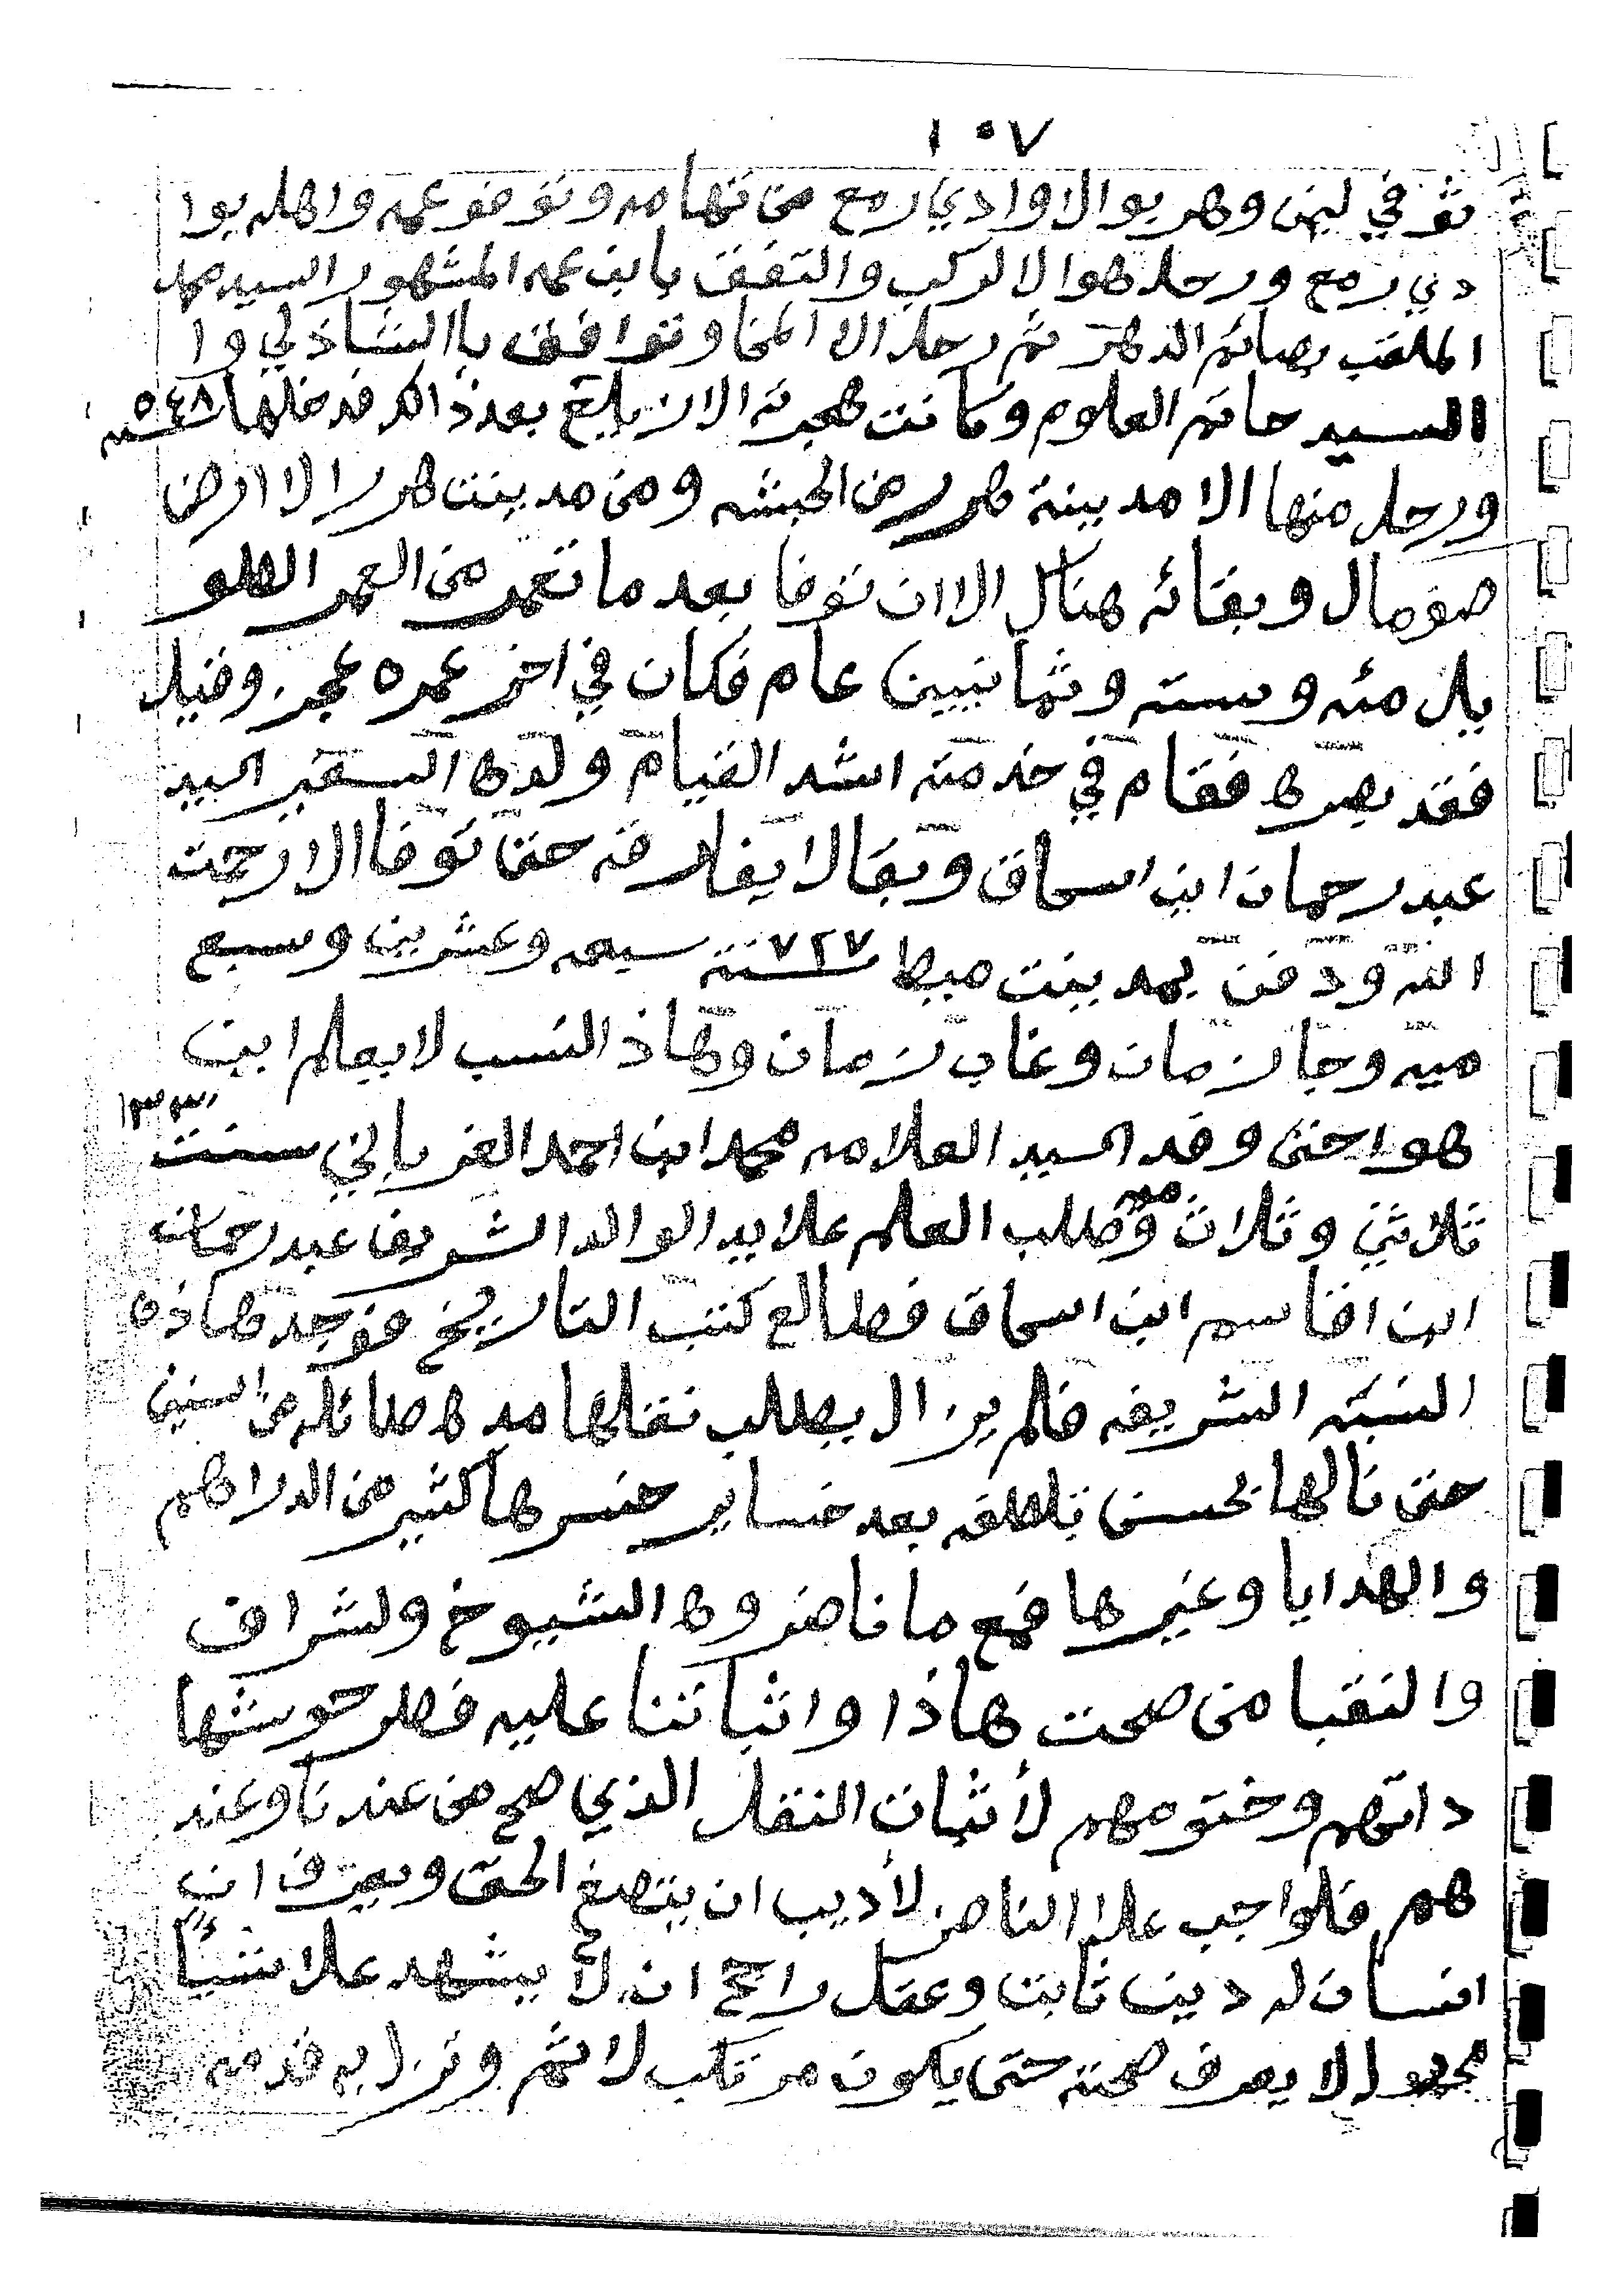 ١٠٧
توفي ليمن وهربوا الا وادي رمع من تهامه وتوفو عمه واهله بوا
دي رمع ورحل هوا الا لركب والتفق بابن عمه المشهور السيد محمد
الملقب بصائم الدهر ثم رحل الا المخا وتوافق باالشاذلي وا
السيد حاتم العلوم وكانت هجرته الا زيلع بعد ذالك فدخلها سنه ٥٤٨
ورحل منها الا مدينة هرر من الحبشه ومن مدينت هرر الا ارض
صومال وبقائه هناك الا ان توفا بعد ما تعمر من العمر الطو
يل مئه وسته وثمانيين عام فكان في اخر عمره عجز وقيل
فقد بصره فقام في خدمته اشد القيام ولده السقير السيد
عبد رحمان ابن اسحاق وبقا لا يفارقه حتا توفا الا رحمت
الله ودفن بمدينت ميط سنة ٧٢٧ سبعه وعشرين وسبع
ميه وجا زمان وغاب زمان وهاذ النسب لا يعلم اين
هوا حتى وفد السيد العلامه محمد ابن احمد الغرباني سنت ١٣٣٠
ثلاثين وثلاث ميه وطلب العلم علا يد الوالد الشريف عبد رحمان
ابن اقاسم ابن اسحاق فطالع كتب التاريخ فوجد هاذه
النسبه الشريفه فلم يزال يطلب نقلها مده طائله من السنين
حتى نالها بحسن تلطفه بعد خساير خسرها كثير من الدراهم
والهدايا وغيرها فمع ما ناضروه الشيوخ ولشراف
والنقبا من صحت هاذا واثباتنا عليه فطرحو شها
داتهم وختومهم لأثبات النقل الذي صح من عندنا وعند
هم فلواجب علا الناضر لأديب ان يتصغ الحق ويعرف ان
انسان له دين ثابت وعقل راجح ان لأ يشهد علا شيأ
مجهول لا يعرف صحته حتى يكون مرتكب لاثم وتزل به قدمه